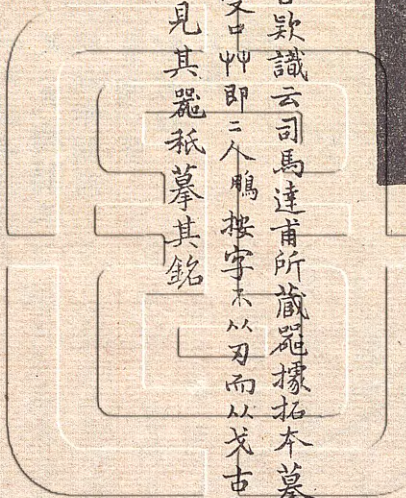 款識云司馬達甫所藏器據拓本摹
艸即二人鵙按字不从刃而从戈古
見其器秖摹其銘